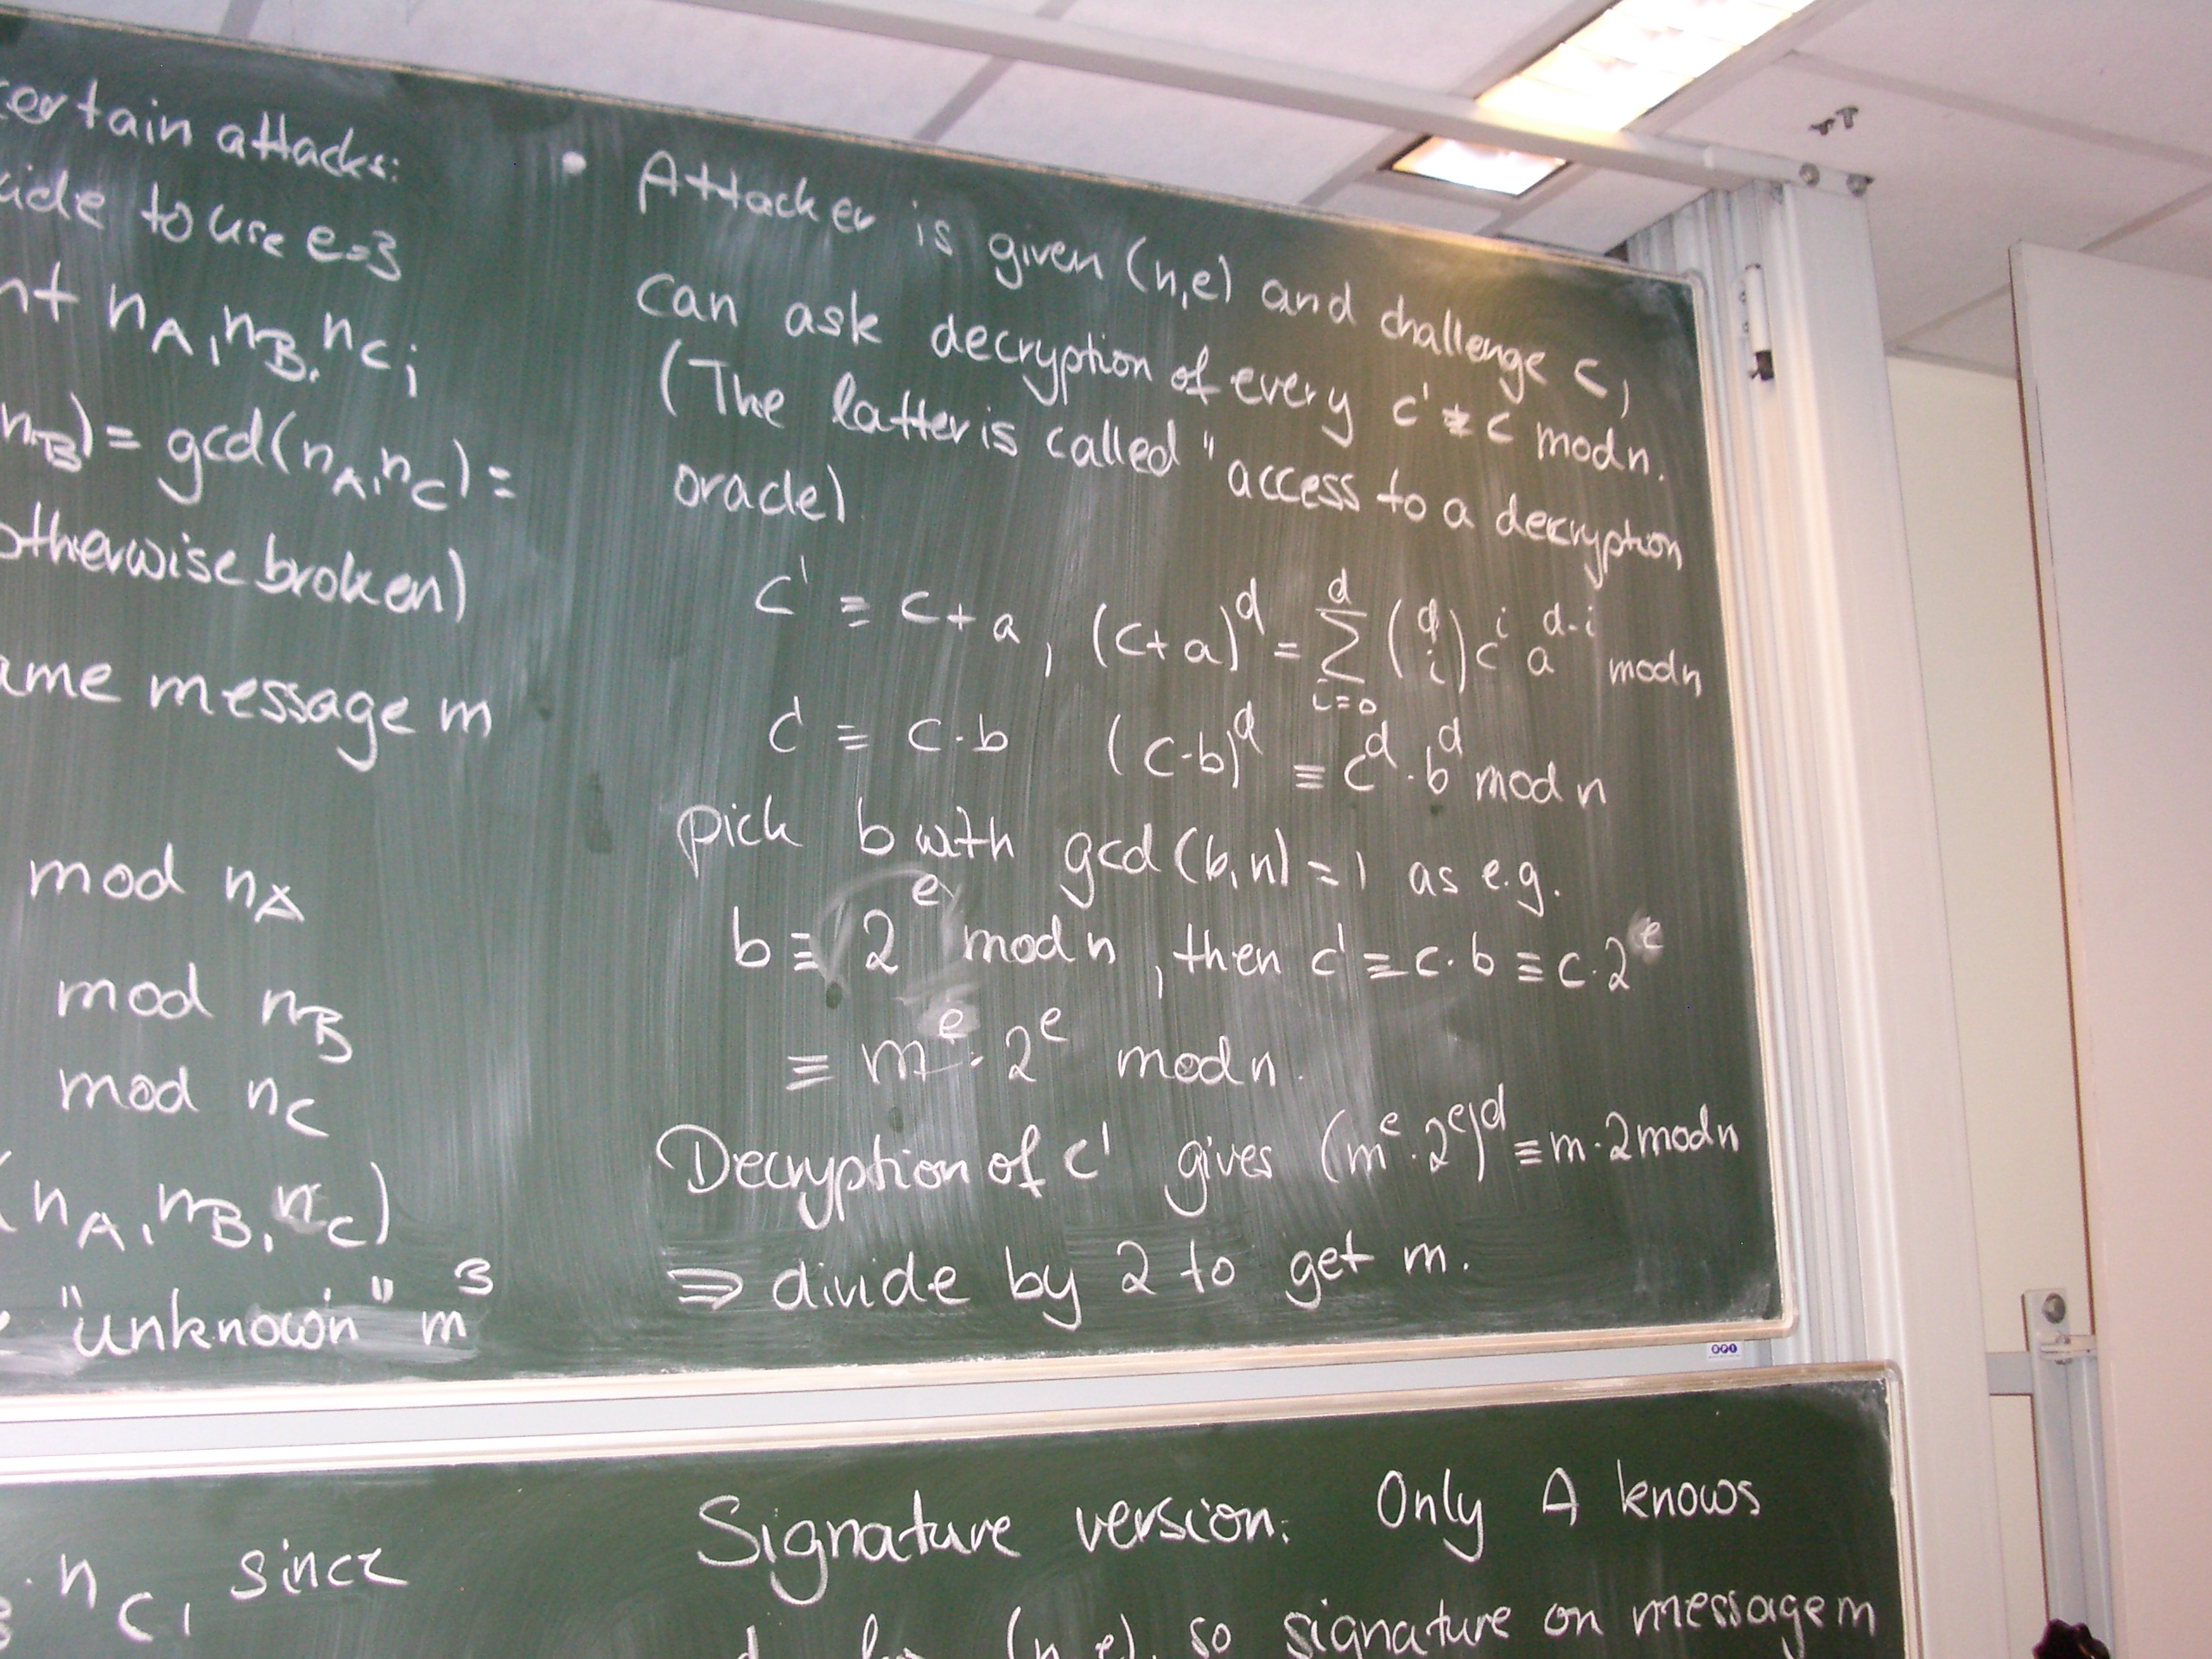 certain attacks:
cide to use e=3
nt n_A, n_B, n_C;
n_B) = gcd(n_A, n_C) =
otherwise broken)
ame message m
mod n_A
mod n_B
mod n_C
(n_A, n_B, n_C)
"unknown" m^3
• Attacker is given (n,e) and challenge c,
can ask decryption of every c' ≢ c mod n.
(The latter is called "access to a decryption
oracle)
c' ≡ c + a, (c+a)^d = ∑_{i=0}^{d} (d i) c^i a^{d-i} mod n
c' ≡ c·b (c·b)^d ≡ c^d·b^d mod n
pick b with gcd(b,n) = 1 as e.g.
b ≡ 2^e mod n, then c' ≡ c·b ≡ c·2^e
≡ m^e·2^e mod n.
Decryption of c' gives (m^e·2^e)^d ≡ m·2 mod n
⇒ divide by 2 to get m.
· n_C, since
Signature version: Only A knows
(n,e), so signature on message m